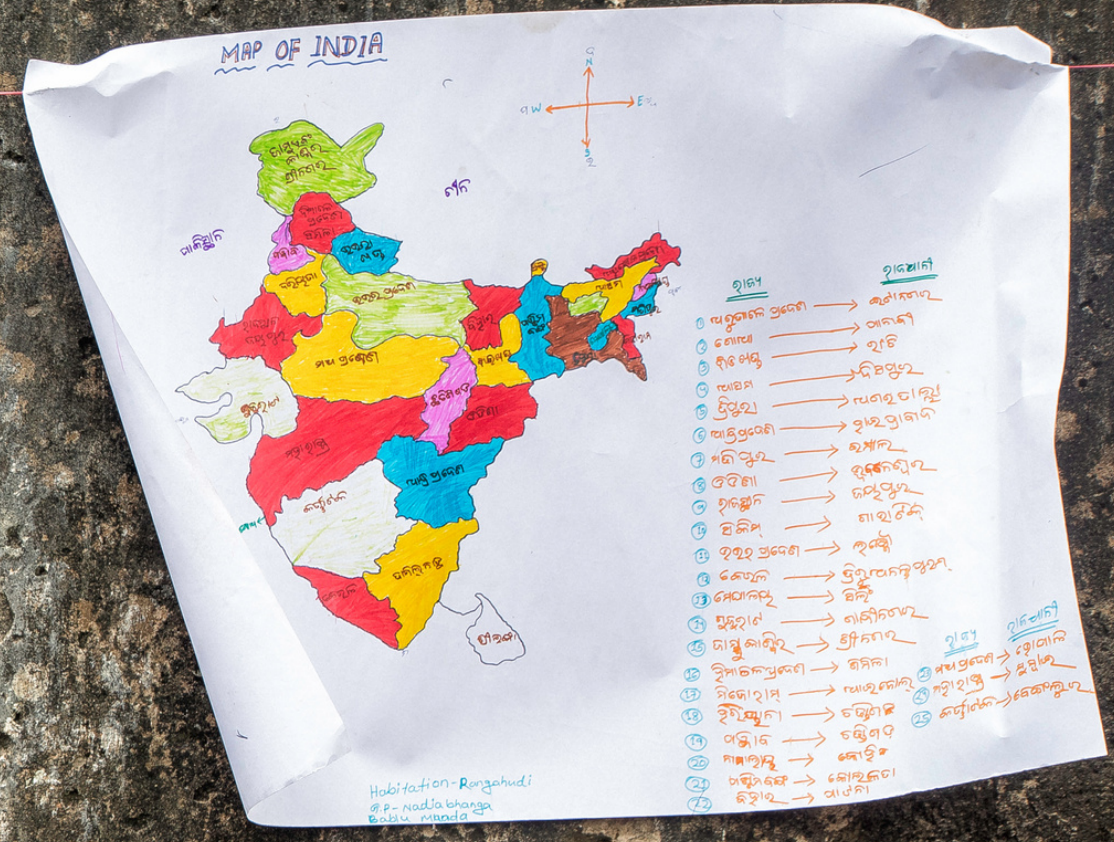 MAP OF INDIA
N
W
E
S
ଚୀନ
ପାକିସ୍ତାନ
ପଞ୍ଜାବ
ହରିୟାନା
ଉତ୍ତର ପ୍ରଦେଶ
ବିହାର
ମଧ୍ୟ ପ୍ରଦେଶ
ଗୁଜୁରାଟ
ଓଡିଶା
ମହାରାଷ୍ଟ୍ର
ଆନ୍ଧ୍ର ପ୍ରଦେଶ
କର୍ଣ୍ଣାଟକ
କେରଳ
ଶ୍ରୀଲଙ୍କା
ରାଜ୍ୟ ରାଜଧାନୀ
1 ଅରୁଣାଚଳ ପ୍ରଦେଶ → ଇଟାନଗର
2 ଗୋଆ → ପାନାଜୀ
3 ଝାଡଖଣ୍ଡ → ରାଂଚି
4 ଆସାମ → ଦିସପୁର
5 ତ୍ରିପୁରା → ଅଗରତାଲ୍ଲା
6 ଆନ୍ଧ୍ରପ୍ରଦେଶ → ହାଇଦ୍ରାବାଦ
7 ମଣିପୁର → ଇମ୍ଫାଲ
8 ଓଡିଶା → ଭୁବନେଶ୍ୱର
9 ରାଜସ୍ଥାନ → ଜୟପୁର
10 ସିକିମ୍ → ଗାଙ୍ଗଟକ୍
11 ଉତ୍ତର ପ୍ରଦେଶ → ଲକ୍ଷ୍ନୌ
12 କେରଳ → ତ୍ରିରୁଅନନ୍ତପୁରମ୍
13 ମେଘାଳୟ → ସିଲଂ
14 ଗୁଜୁରାଟ → ଗାନ୍ଧୀନଗର
15 ଜାମ୍ମୁ କାଶ୍ମିର → ଶ୍ରୀନଗର
16 ହିମାଚଳପ୍ରଦେଶ → ସିମଲା
17 ମିଜୋରାମ୍ → ଆଇଜୋଲ୍
18 ହରିୟାନା → ଚଣ୍ଡିଗଡ
19 ପଞ୍ଜାବ → ଚଣ୍ଡିଗଡ଼
20 ନାଗାଲାଣ୍ଡ → କୋହିମ
21 ପଶ୍ଚିମବଙ୍ଗ → କୋଲକତା
22 ବିହାର → ପାଟନା
ରାଜ୍ୟ ରାଜଧାନୀ
23 ମଧ୍ୟପ୍ରଦେଶ → ଭୋପାଳ
24 ମହାରାଷ୍ଟ୍ର → ମୁମ୍ବାଇ
25 କର୍ଣ୍ଣାଟକ → ବେଙ୍ଗାଲୁର
Habitation-Rangahudi
G.P- Nadiabhanga
Bablu Maada